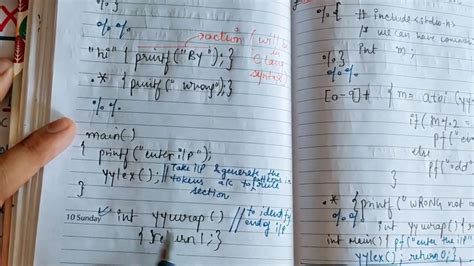 %%
action (will be in C lang syntax)
"hi" { printf("By");}
.* { printf("wrong");}
%%
main()
{ printf("enter i/p");
yylex(); // Take i/p & generate the
tokens a/c to rule
section
}
10 Sunday
int yywrap() // to identify
end of i/p
{ return 1;}
%{ # include<stdio.h>
/* we can have
int m;
%}
%%
[0-9]+ { m= atoi(yy
if(m%2
pf("
else
pf("od
.* {printf("WRONG not a
%%
int main() { pf("enter the
yylex(); return 0;}